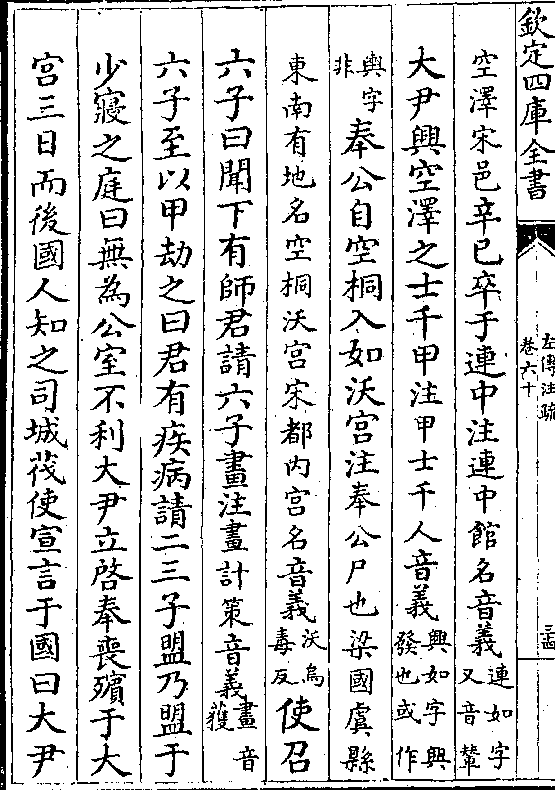 欽定四庫全書
左傳注疏
卷六十
空澤宋邑辛巳卒于連中注連中館名音義連如字
又音輦
大尹興空澤之士千甲注甲士千人音義興如字興
發也或作
輿字
非奉公自空桐入如沃宮注奉公尸也梁國虞縣
東南有地名空桐沃宮宋都内宮名音義沃烏
毒反使召
六子曰聞下有師君請六子畫注畫計策音義畫音
獲
六子至以甲劫之曰君有疾病請二三子盟乃盟于
少寢之庭曰無為公室不利大尹立啓奉喪殯于大
宮三日而後國人知之司城茷使宣言于國曰大尹